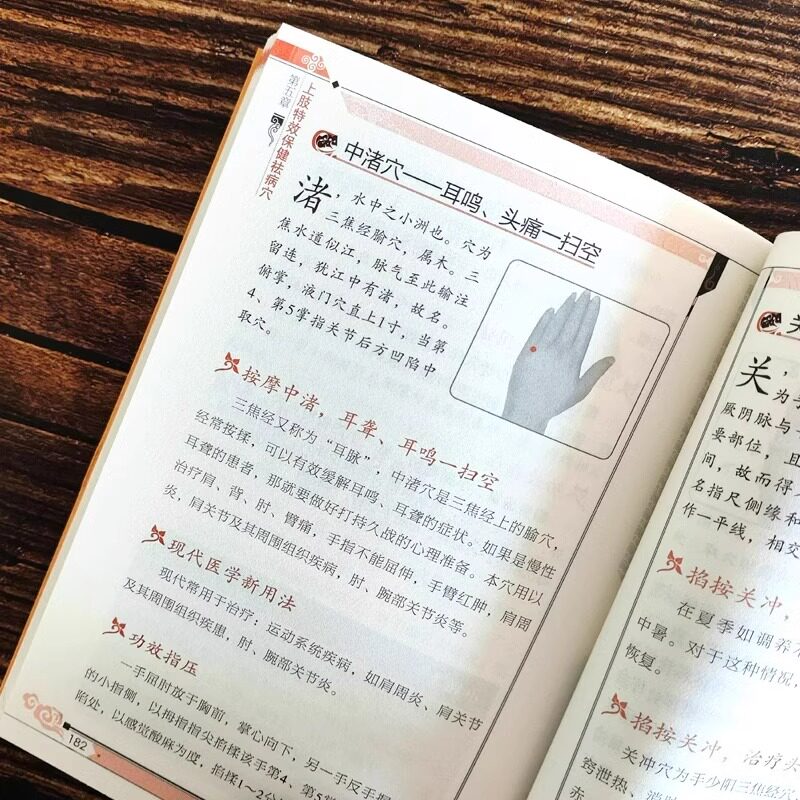 第五章
上肢特效保健祛病穴
中渚穴——耳鸣、头痛一扫空
渚，水中之小洲也。穴为
三焦经腧穴，属木。三
焦水道似江，脉气至此输注
留连，犹江中有渚，故名。
俯掌，液门穴直上1寸，当第
4、第5掌指关节后方凹陷中
取穴。
按摩中渚，耳聋、耳鸣一扫空
三焦经又称为“耳脉”，中渚穴是三焦经上的腧穴，
经常按揉，可以有效缓解耳鸣、耳聋的症状。如果是慢性
耳聋的患者，那就要做好打持久战的心理准备。本穴用以
治疗肩、背、肘、臂痛，手指不能屈伸，手臂红肿，肩周
炎，肩关节及其周围组织疾病，肘、腕部关节炎等。
现代医学新用法
现代常用于治疗：运动系统疾病，如肩周炎、肩关节
及其周围组织疾患，肘、腕部关节炎。
功效指压
一手屈肘放于胸前，掌心向下，另一手反手握
的小指侧，以拇指指尖掐揉该手第4、第5掌
陷处，以感觉酸麻为度，掐揉1～2分
182
关
关，
为手
厥阴脉与
要部位，且
间，故而得
名指尺侧缘和
作一平线，相交
掐按关冲，
在夏季如调养不
中暑。对于这种情况，
恢复。
掐按关冲，治疗头
关冲穴为手少阳三焦经穴
窍泄热、消
赤